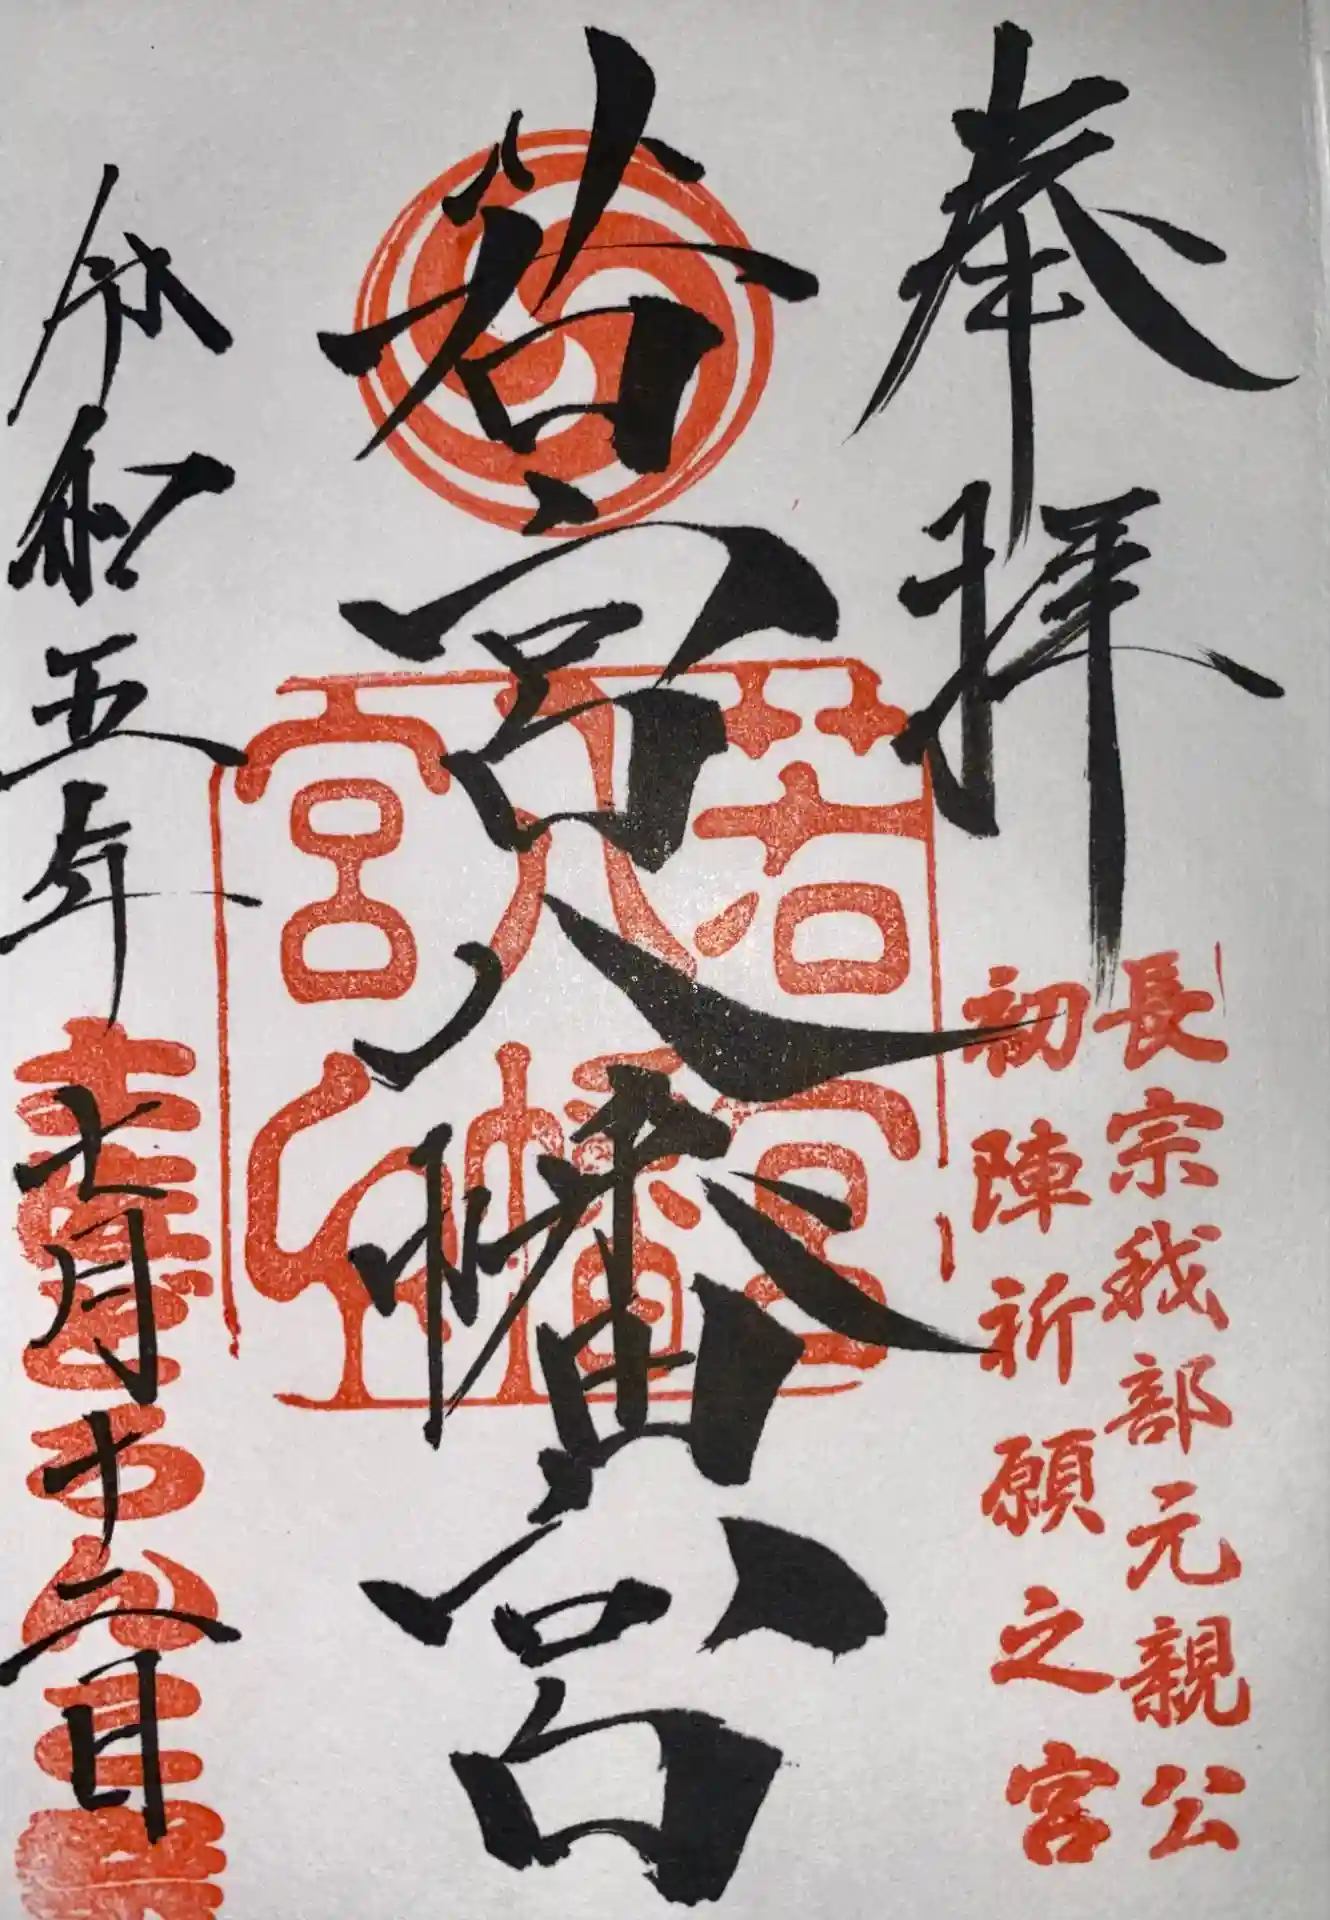 奉拝
長宗我部元親公
初陣祈願之宮
若宮八幡宮
若宮
八幡
宮印
令和五年七月十二日